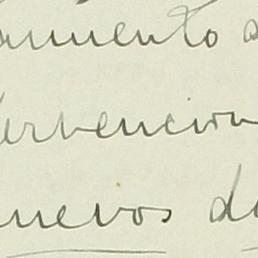 amento
ervencion
nuevos d